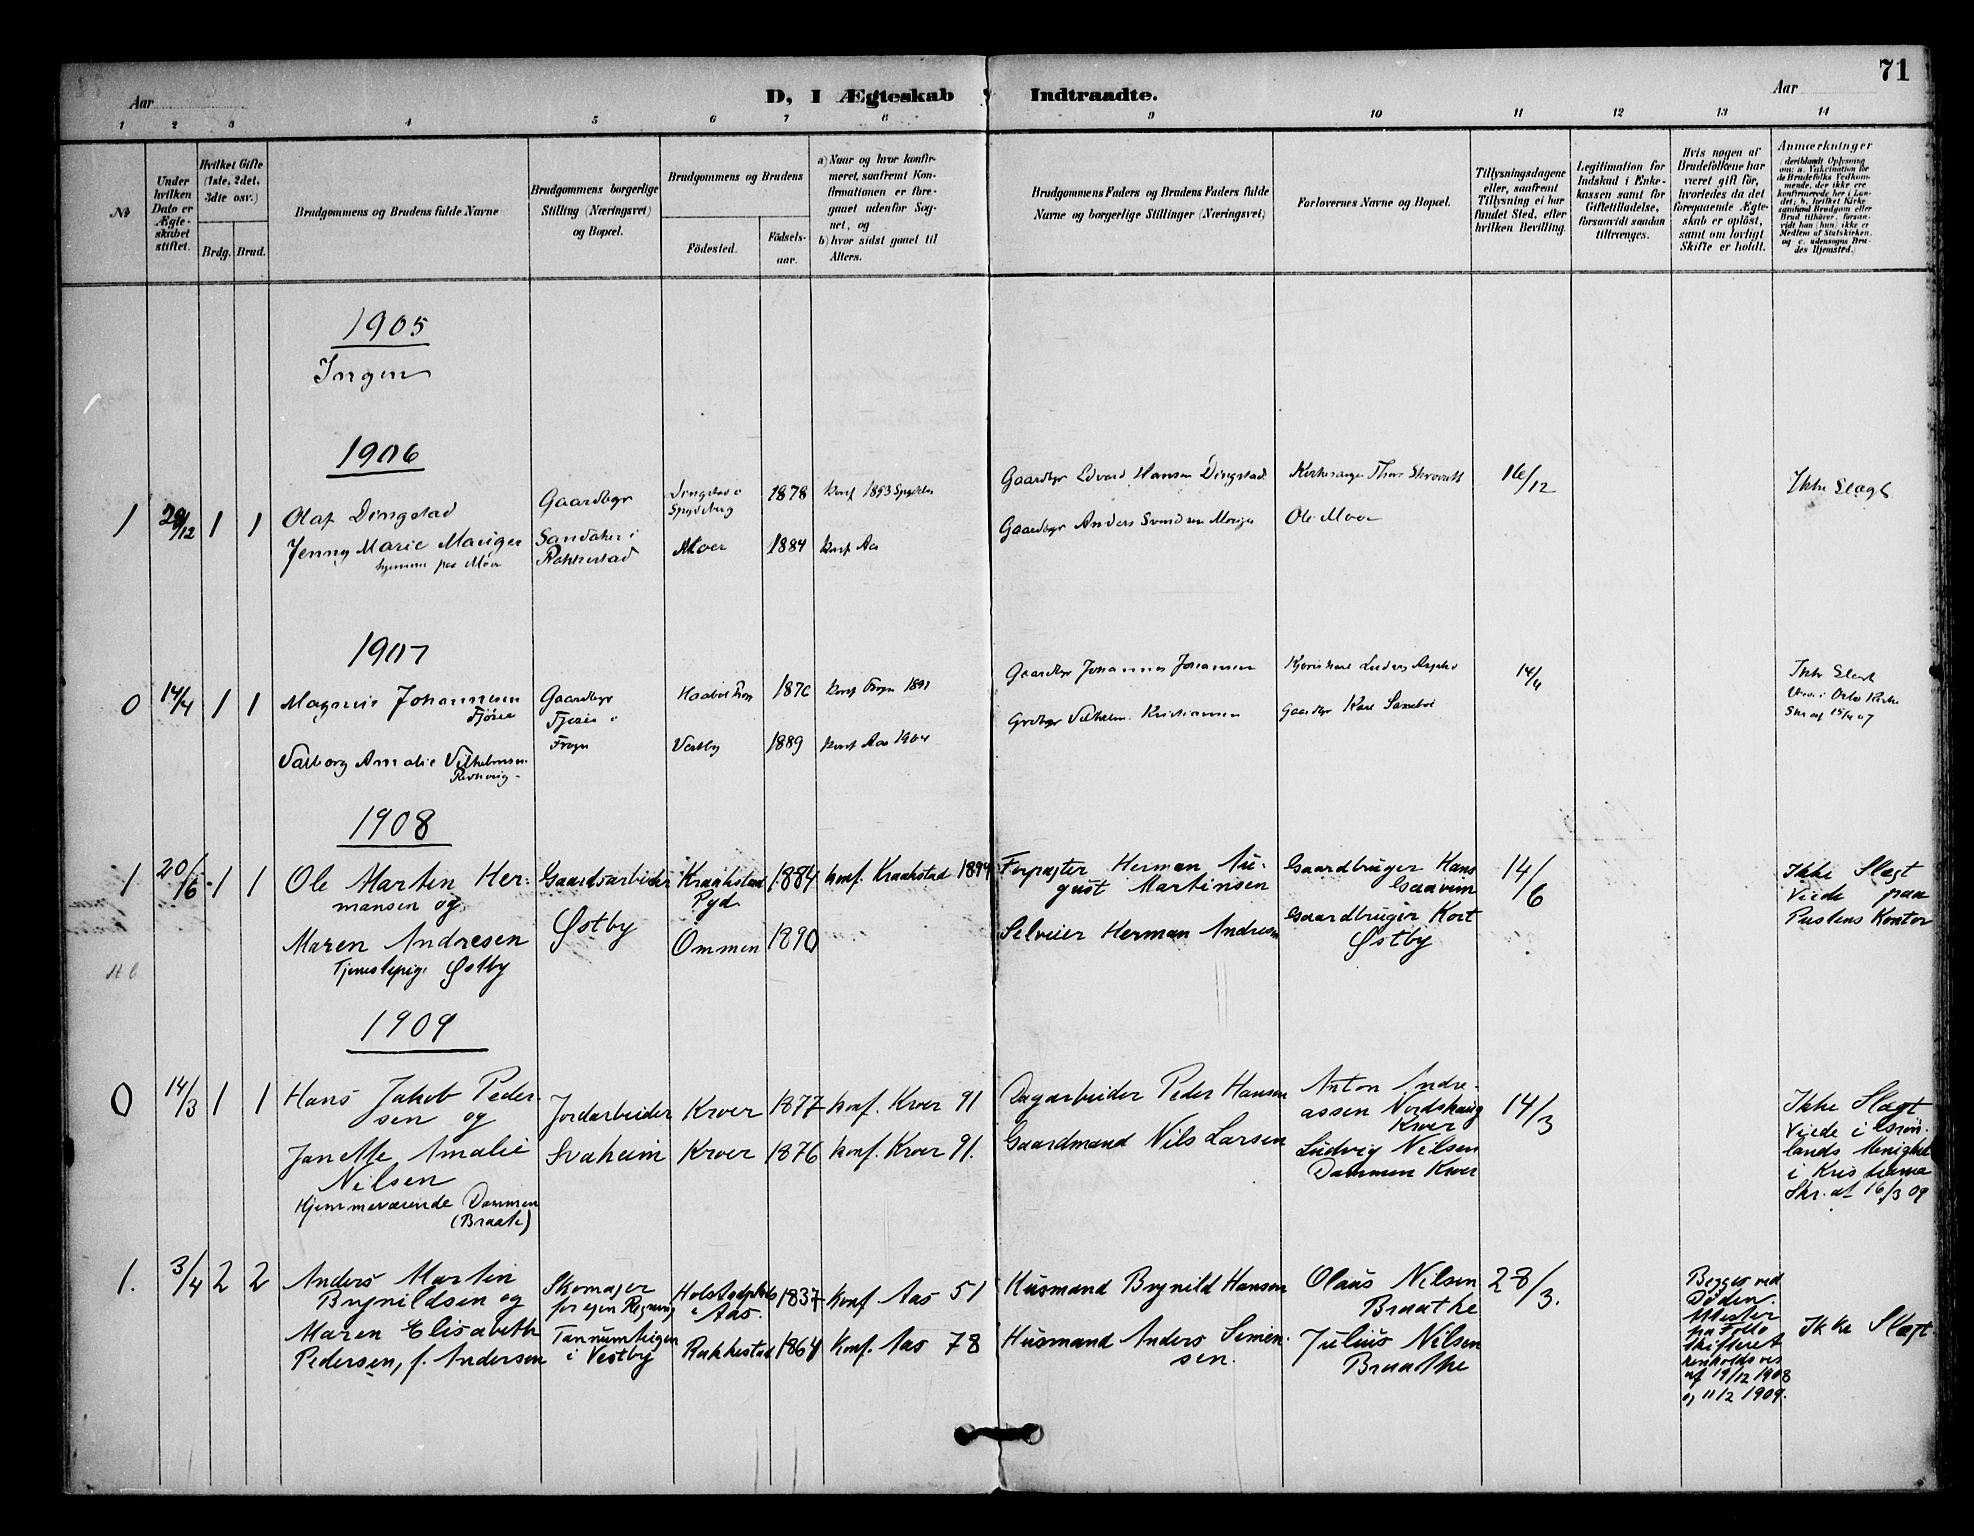 71
Aar
D, I Ægteskab Indtraadte.
Aar
1 2 3 4 5 6 7 8 9 10 11 12 13 14
No
Under hvilken Dato er Ægteskabet stiftet.
Hvilket Gifte (1ste, 2det, 3dte osv.)
Brdg. Brud.
Brudgommens og Brudens fulde Navne
Brudgommens borgerlige Stilling (Næringsvei) og Bopæl.
Brudgommens og Brudens
Födested.
Födsels-aar.
a) Naar og hvor konfirmeret, saafremt Konfirmationen er foregaaet udenfor Sognet, og
b) hvor sidst gaaet til Alters.
Brudgommens Faders og Brudens Faders fulde Navne og borgerlige Stillinger (Næringsvei)
Forlovernes Navne og Bopæl.
Tillysningsdagene eller, saafremt Tillysning ei har fundet Sted, efter hvilken Bevilling.
Legitimation for Indskud i Enkekassen samt for Giftetilladelse, forsaavidt saadan tiltrænges.
Hvis nogen af Brudefolkene har været gift før, hvorledes da det foregaaende Ægteskab er oplöst, samt om lovligt Skifte er holdt.
Anmærkninger
1905
Ingen
1906
1 29/12 1 1
Olaf Dingstad
Jenny Marie Mariger
hjemme paa Moer
Gaardbgr
Sandaker i
Rakkestad
Dingstad i
Spydeberg
1878
Konf 1893
Moer
1884
Konf Aas
Gaardbgr Edvard Hansen Dingstad
Gaardbgr Anders Svendsen
Kirkesanger Thor
Ole Moer
16/12
Ikke Slægt
1907
0 14/4 1 1
Magnus Johannesen
Valborg Amalie Vilhelmsen
Gaardbgr
i
Frogn
1876
Konf Frogn 1891
Vestby
1889
Konf Aas 1904
Gaardbgr Johannes Johansen
Grdbgr Vilhelm Kristiansen
Ludvig
Gaardbgr Karl
14/4
Ikke Slægt
Viet i Oslo Kirke
Skr af 15/4 07
1908
1 20/6 1 1
Ole Martin Hermansen og
Maren Andresen
Tjenestepige Østby
Gaardsarbeider
Østby
Kraakstad
Pgd
1884
Konf. Kraakstad 1899
Ommen
1890
Forpagter Herman August Martinsen
Selveier Herman Andresen
Gaardbruger Hans
Gaardbruger Kort
Østby
14/6
Ikke Slægt
Viede paa
Prestens Kontor
1909
0 14/3 1 1
Hans Jakob Pedersen og
Janette Amalie
Nilsen
Hjemmeværende Dammen
(Braate)
Jordarbeider
Svaheim
Kroer 1877 Konf. Kroer 91
Kroer 1876 Konf. Kroer 91.
Dagarbeider Peder Hansen
Gaardmand Nils Larsen
Anton Andreassen Nordskaug
Kroer
Ludvig Nilsen
Dammen Kroer
14/3
Ikke Slægt
Viede i Grønlands Menighet
i Kristiania
Skr. af 16/3 09
1. 3/4 2 2
Anders Martin
Brynildsen og
Maren Elisabeth
Pedersen, f. Andersen
Skomager
for egen Regning
i Vestby
i Aas.
1837 Konf Aas 51
Rakkestad 1864 Konf. Aas 78
Husmand Brynild Hansen
Husmand Anders Simensen.
Olaus Nilsen
Braathe
Julius Nilsen
Braathe
28/3.
Begges ved
Døden.
Attester
fra Follo
Skifteret
henholdsvis
af 19/12 1908
og 11/2 1909.
Ikke Slægt.